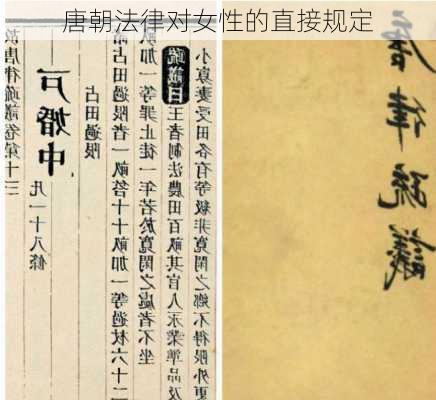 唐朝法律对女性的直接规定
故唐律疏議卷第十三
戶婚中
凡一十八條
占田過限
占田過限者一畝笞十十畝加一等過杖六十二十
加一等罪止徒一年若於寬閑之處者不坐
疏議曰王者制法農田百畝其官人永業準品及
小寡妻受田各有等級非寬閑之鄉不得限外更
唐律疏議